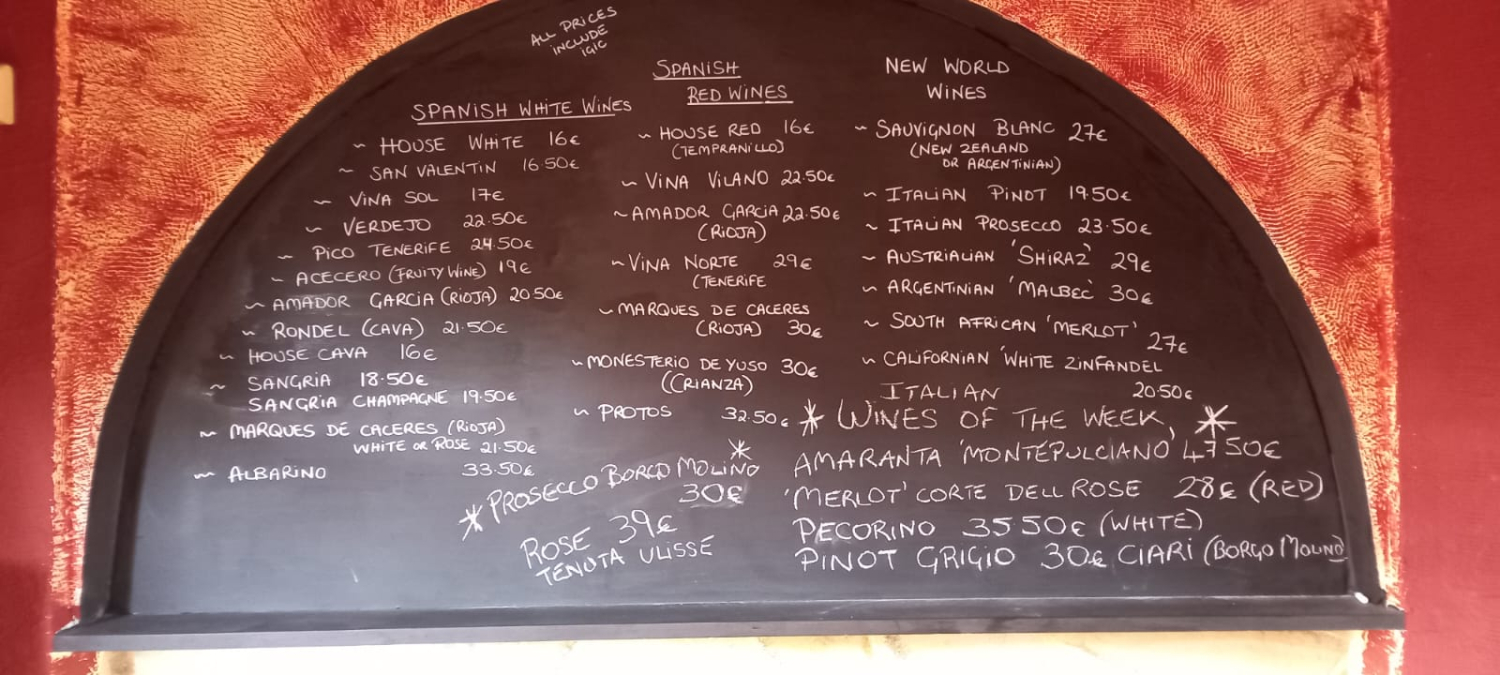 ALL PRICES
INCLUDE
IGIC
SPANISH WHITE WINES
~ HOUSE WHITE 16€
~ SAN VALENTIN 16.50€
~ VINA SOL 17€
~ VERDEJO 22.50€
~ PICO TENERIFE 24.50€
~ ACECERO (FRUITY WINE) 19€
~ AMADOR GARCIA (RIOJA) 20.50€
~ RONDEL (CAVA) 21.50€
~ HOUSE CAVA 16€
~ SANGRIA 18.50€
SANGRIA CHAMPAGNE 19.50€
~ MARQUES DE CACERES (RIOJA)
WHITE OR ROSE 21.50€
~ ALBARINO 33.50€
SPANISH
RED WINES
~ HOUSE RED 16€
(TEMPRANILLO)
~ VINA VILANO 22.50€
~ AMADOR GARCIA 22.50€
(RIOJA)
~ VINA NORTE 29€
(TENERIFE
~ MARQUES DE CACERES
(RIOJA) 30€
~ MONESTERIO DE YUSO 30€
(CRIANZA)
~ PROTOS 32.50€
* PROSECCO BORGO MOLINO *
30€
ROSE 39€
TENUTA ULISSE
NEW WORLD
WINES
~ SAUVIGNON BLANC 27€
(NEW ZEALAND
OR ARGENTINIAN)
~ ITALIAN PINOT 19.50€
~ ITALIAN PROSECCO 23.50€
~ AUSTRIALIAN 'SHIRAZ' 29€
~ ARGENTINIAN 'MALBEC' 30€
~ SOUTH AFRICAN 'MERLOT'
27€
~ CALIFORNIAN 'WHITE ZINFANDEL
ITALIAN 20.50€
* WINES OF THE WEEK, *
AMARANTA 'MONTEPULCIANO' 47 50€
'MERLOT' CORTE DELL ROSE 28€ (RED)
PECORINO 35 50€ (WHITE)
PINOT GRIGIO 30€ CIARI (BORGO MOLINO)